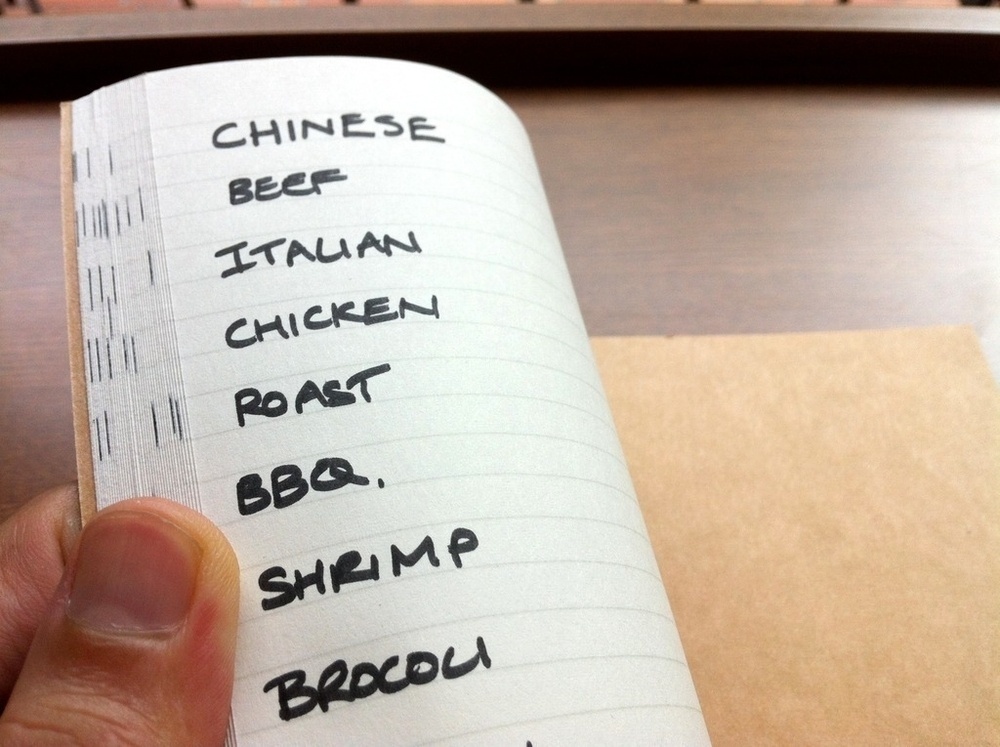 CHINESE
BEEF
ITALIAN
CHICKEN
ROAST
BBQ.
SHRIMP
BROCOLI